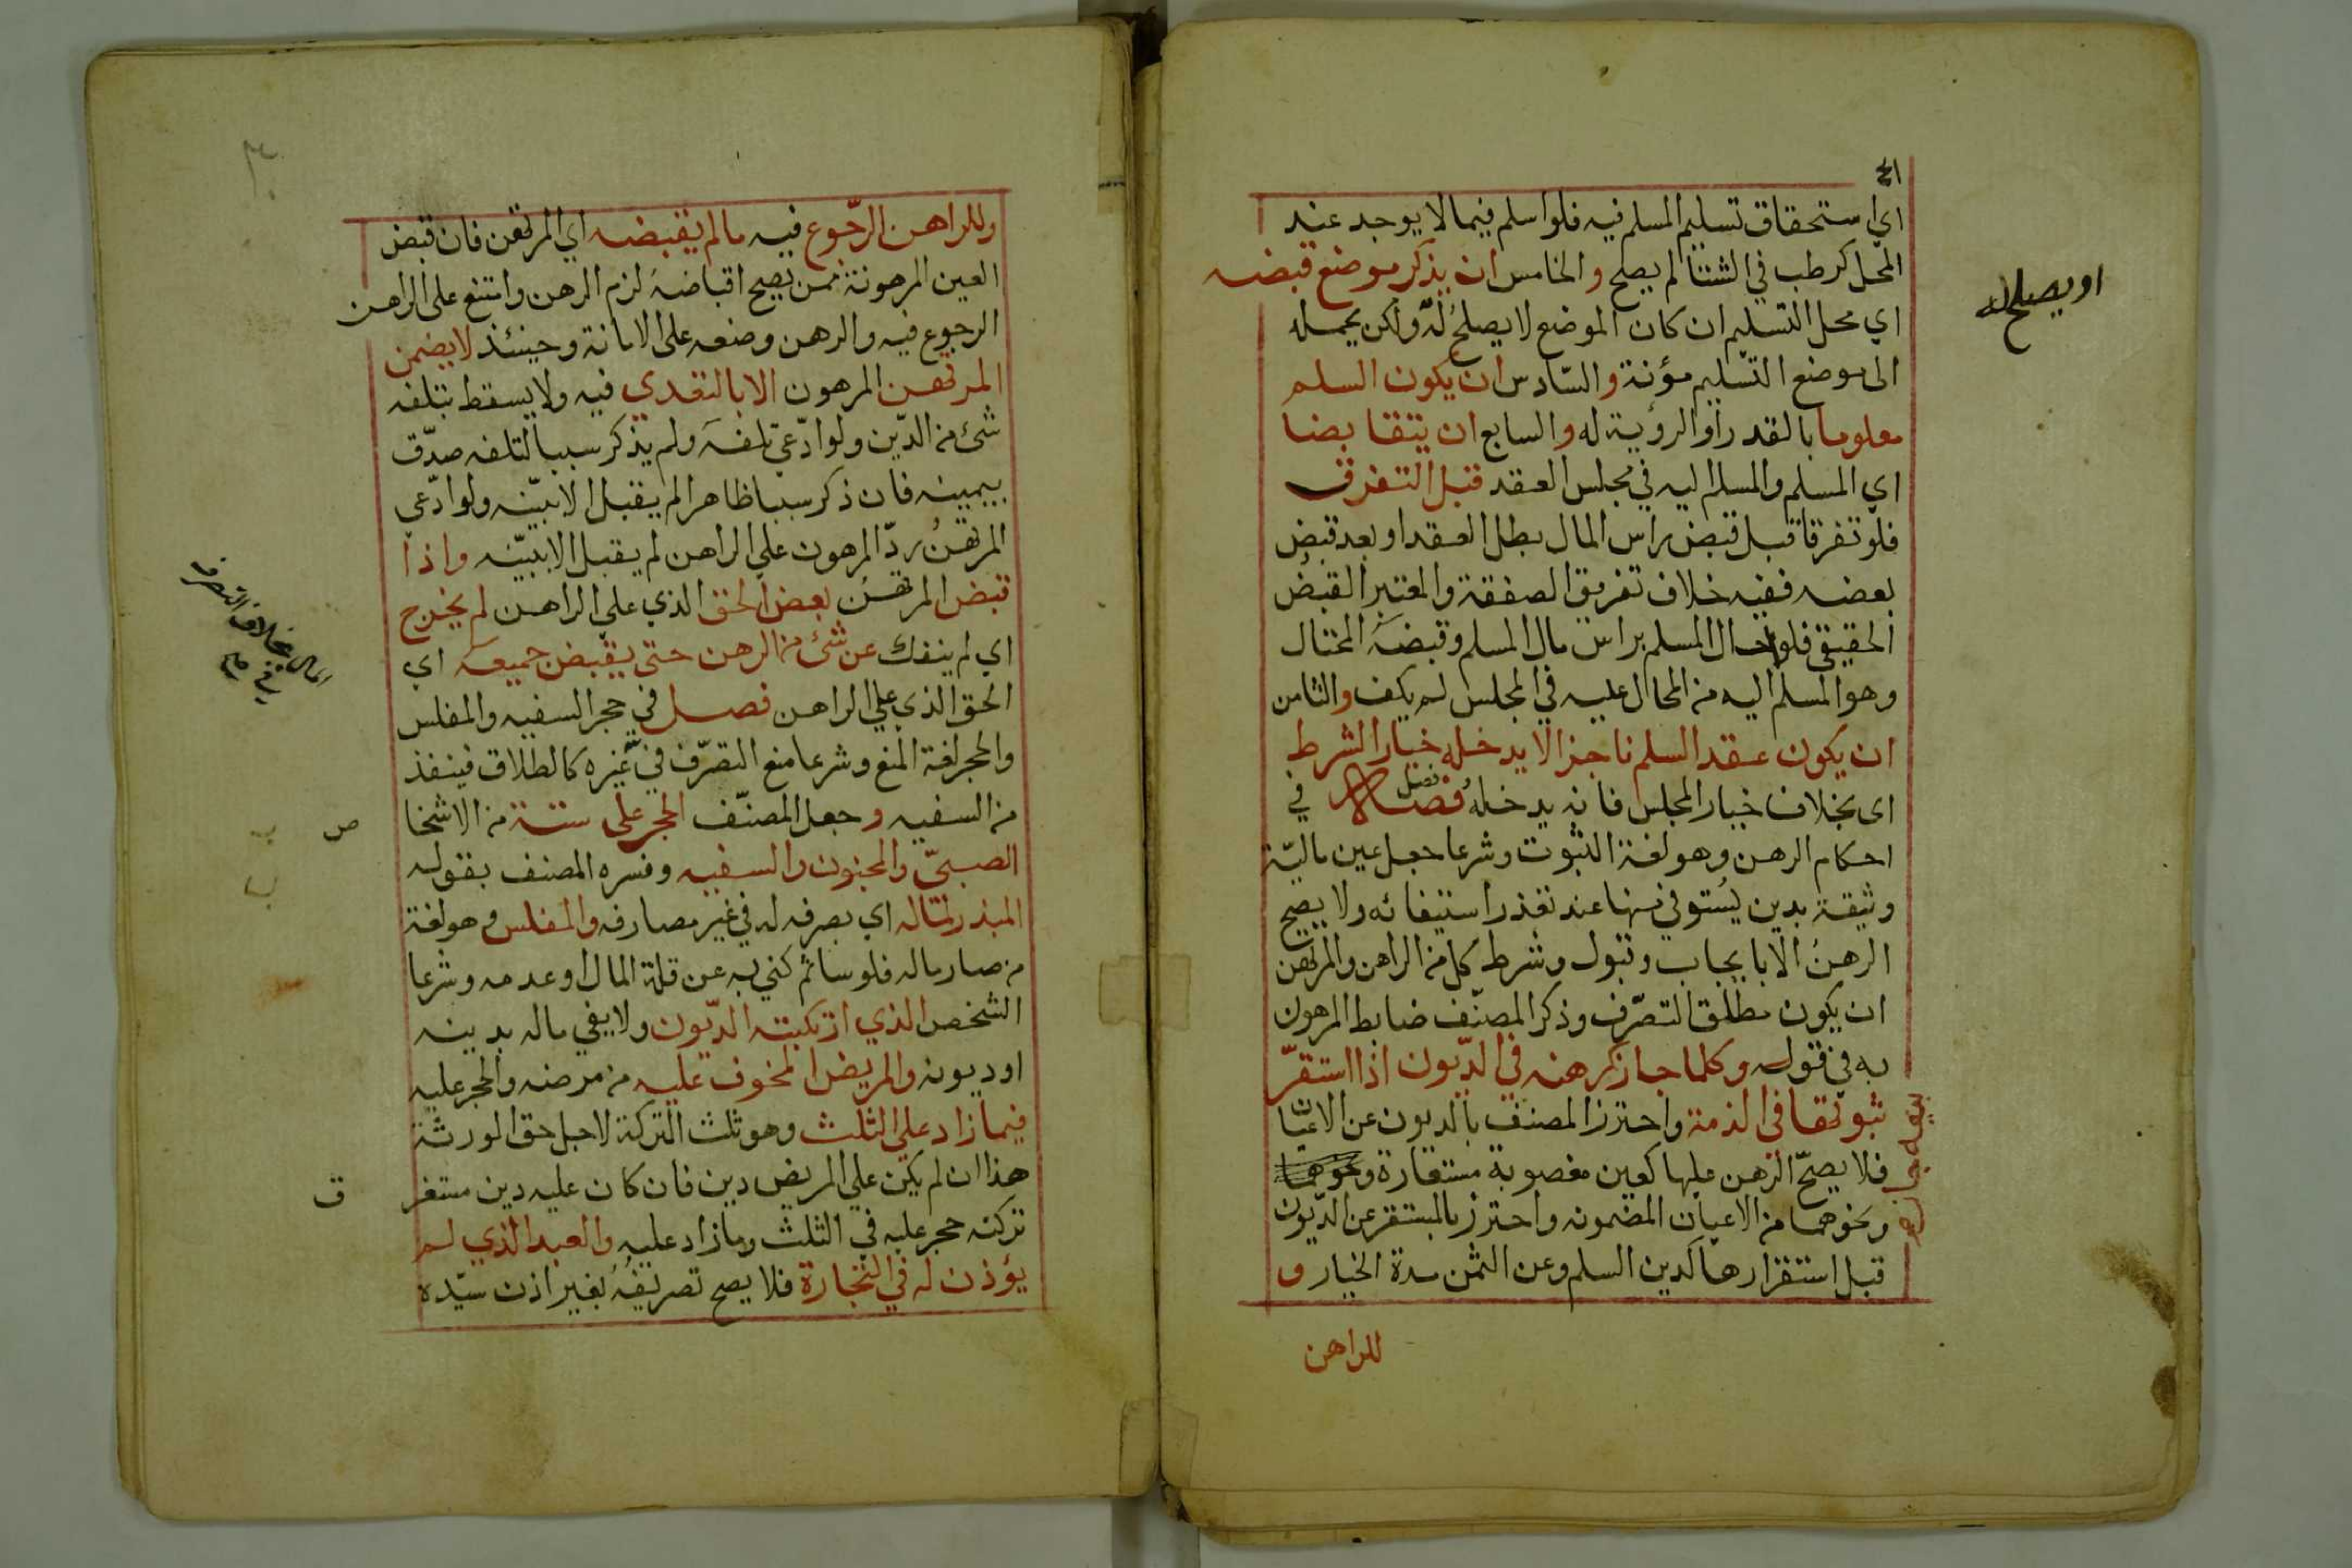 اي استحقاق تسليم المسلم فيه فلو اسلم فيما لا يوجد عند
المحل كرطب في الشتا لم يصلح والخامس ان يذكر موضع قبضه
اي محل التسليم ان كان الموضع لا يصلح له ولكن يحمله
او يصلح له
الى موضع التسليم مؤنة والسّادس ان يكون السلم
معلوما بالقدر او الرؤية له والسابع ان يتقابضا
اي المسلم والمسلم اليه في مجلس العقد قبل التفرق
فلو تفرقا قبل قبض راس المال بطل العقد او بعد قبض
بعضه ففيه خلاف تفريق الصفقة والمعتبر القبض
الحقيقي فلو احال المسلم براس مال المسلم وقبضه المحتال
وهو المسلم اليه من المحال عليه في المجلس لم يكف والثامن
ان يكون عقد السلم ناجزا لا يدخله خيار الشرط
اى بخلاف خيار المجلس فانه يدخله فصل في
فصل
احكام الرهن وهو لغة الثبوت وشرعا جعل عين ماليّة
وثيقة بدين يُستوفي منها عند تعذر استيفائه ولا يصح
الرهنُ الا بايجاب وقبول وشرط كل من الراهن والمرتهن
ان يكون مطلق التصرّف وذكر المصنّف ضابط المرهون
به في قوله وكلما جاز رهنه في الديون اذا استقرّ
ثبوتها في الذمة واحترز المصنف بالديون عن الاعيان
فلا يصحّ الرهن عليها كعين مغصوبة مستعارة ونحوهما
ونحوهما من الاعيان المضمونه واحترز بالمستقر عن الديون
قبل استقرارها كدين السلم وعن الثمن مدة الخيار و
للراهن
وللراهن الرّجوع فيه ما لم يقبضه اي المرتهن فان قبض
العين المرهونة ممن يصح اقباضهُ لزم الرهن وامتنع على الراهن
الرجوع فيه والرهن وضعه على الامانة وحينئذ لا يضمن
المرتهن المرهون الا بالتعدي فيه ولا يسقط بتلفه
شئ من الدّين ولو ادّعي تلفه ولم يذكر سببا لتلفه صدّق
بيمينه فان ذكر سببا ظاهرا لم يقبل الا ببيّنه ولو ادّعي
المرتهنُ ردّ المرهون علي الراهن لم يقبل الا ببيّنه واذا
قبض المرتهنُ بعض الحق الذي علي الراهن لم يخرج
اي لم ينفك عن شئ من الرهن حتى يقبض جميعه اي
الحق الذي علي الراهن فصل في حجر السفيه والمفلس
والحجر لغة المنع وشرعا منع التصرّف في غيره كالطلاق فينفذ
المال بخلاف التصرف
من السفيه وجعل المصنّف الحجر على ستة من الاشخا
ص
الصبيّ والمجنون والسفيه وفسره المصنف بقوله
المبذر لماله اي يصرفه له في غير مصارفه والمفلس وهو لغة
من صار ماله فلوسا ثم كني به عن قلة المال او عدمه وشرعا
الشخص الذي ارتكبته الدّيون ولا يفي ماله بدينه
او ديونه والمريض المخوف عليه من مرضه والحجر عليه
فيما زاد علي الثلث وهو ثلث التركة لاجل حق الورثة
هذا ان لم يكن علي المريض دين فان كان عليه دين مستغر
ق
تركته حجر عليه في الثلث وما زاد عليه والعبد الذي لم
يؤذن له في التجارة فلا يصح تصريفُهُ بغير اذن سيّده